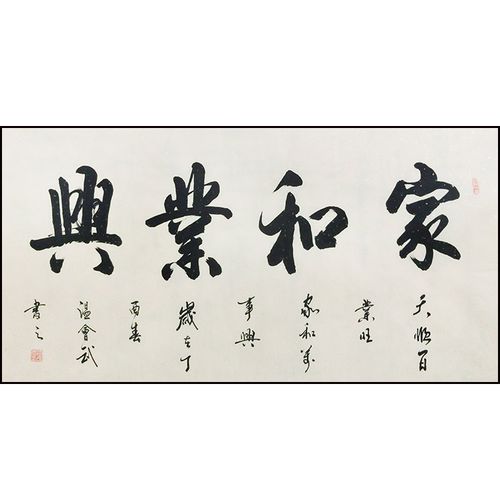 家和業興
天順百
業旺
家和萬
事興
歲在丁
酉春
温會武
書之